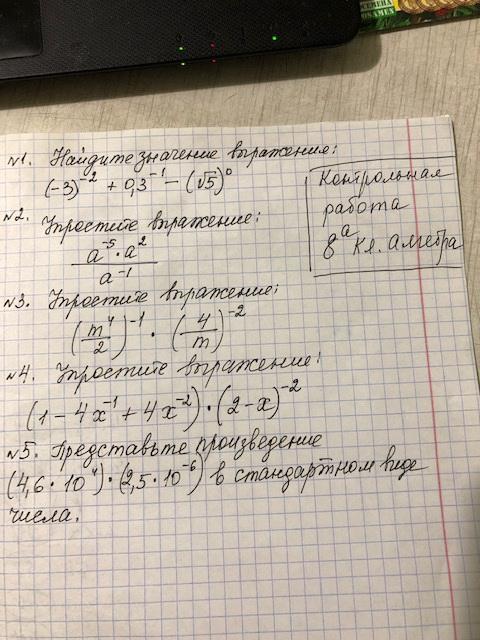 СЕМЕНА
№1. Найдите значение выражения:
(-3)⁻² + 0,3⁻¹ - (√5)⁰
Контрольная
работа
8ᵃ кл. алгебра
№2.
Упростите выражение:
a⁻⁵ · a²
a⁻¹
№3. Упростите выражение:
(m⁴/2)⁻¹ · (4/m)⁻²
№4. Упростите выражение:
(1 - 4x⁻¹ + 4x⁻²) · (2 - x)⁻²
№5. Представьте произведение
(4,6 · 10⁴) · (2,5 · 10⁻⁶) в стандартном виде
числа.